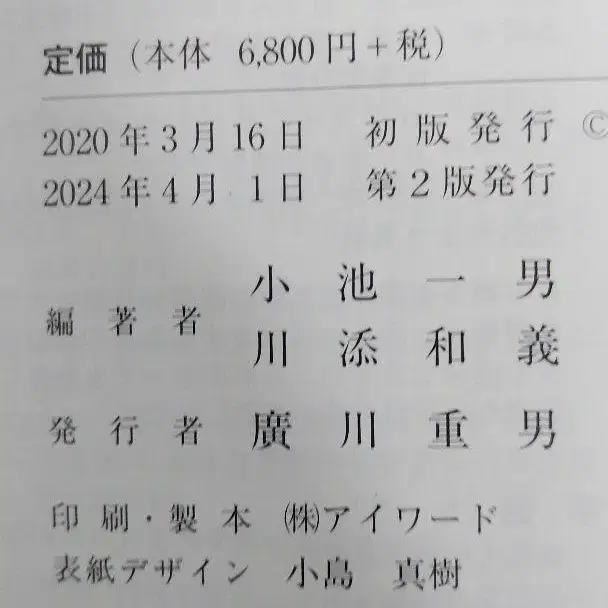 定価（本体 6,800円＋税）
2020年3月16日 初版発行 ©
2024年4月 1日 第2版発行
編著者 小池一男
川添和義
発行者 廣川重男
印刷・製本 ㈱アイワード
表紙デザイン 小島 真樹